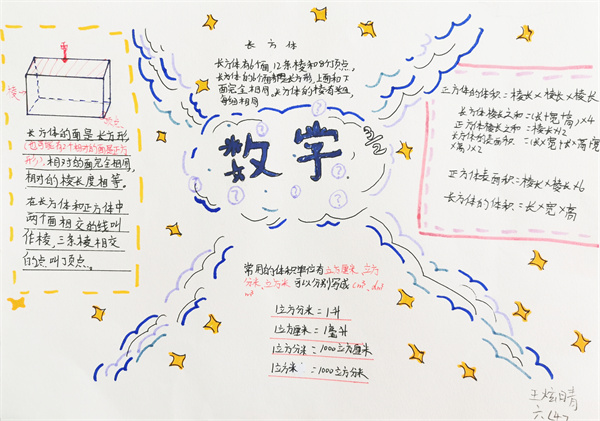 面
棱
顶点
长方体的面是长方形
(也可能有2个相对的面是正方
形),相对的面完全相同,
相对的棱长度相等。
在长方体和正方体中
两个面相交的线叫
作棱,三条棱相交
的点叫顶点。
长方体
长方体有6个面,12条棱和8个顶点,
面完全相同。
每组相同
数学
正方体的体积=棱长×棱长×棱长
长方体棱长之和=(长+宽+高)×4
正方体棱长之和=棱长×12
正方体表面积=棱长×棱长×6
长方体的体积=长×宽×高
常用的体积单位有立方厘米、立方
分米、立方米,可以分别写成cm³、dm³
m³
1立方分米=1升
1立方厘米=1毫升
1立方分米=1000立方厘米
1立方米=1000立方分米
六(4)